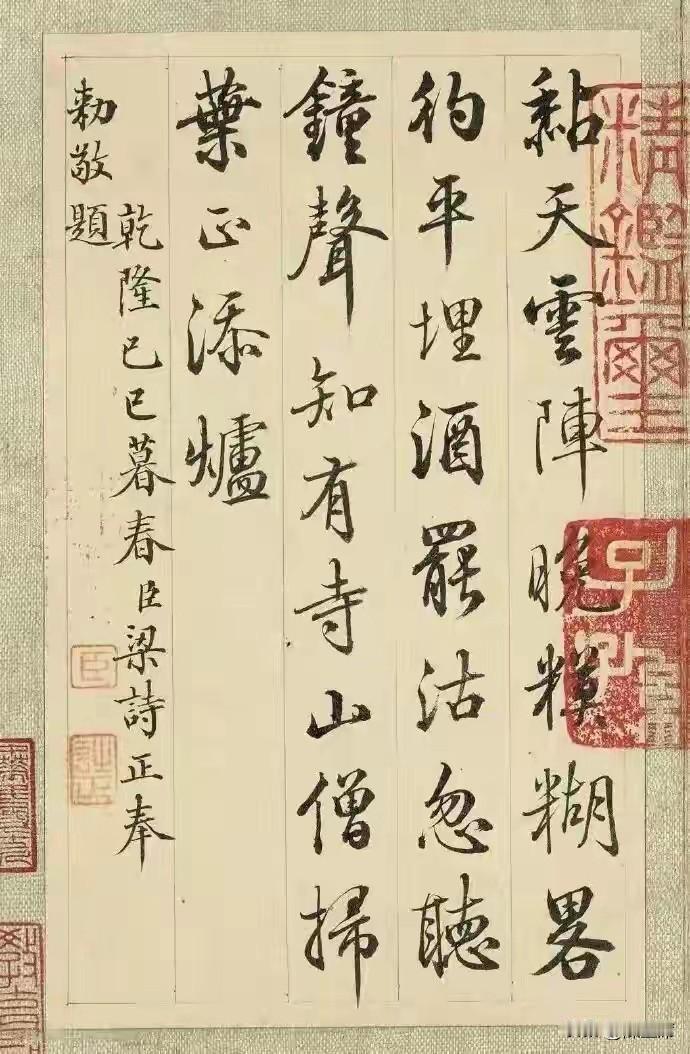 黏天雲陣晚糢糊畧
彴平埋酒罷沽忽聽
鐘聲知有寺山僧掃
葉正添爐
乾隆己巳暮春臣梁詩正奉
勅敬題
精鑑璽
臣